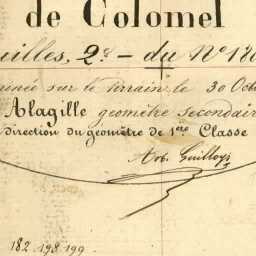 de Colomel
uilles, 2e - du No 180
minée sur le terrain, le 30 Octo
Alagille géomètre secondair
direction du géomètre de 1ere Classe
Art. Guilloys
182 . 198 . 199 .